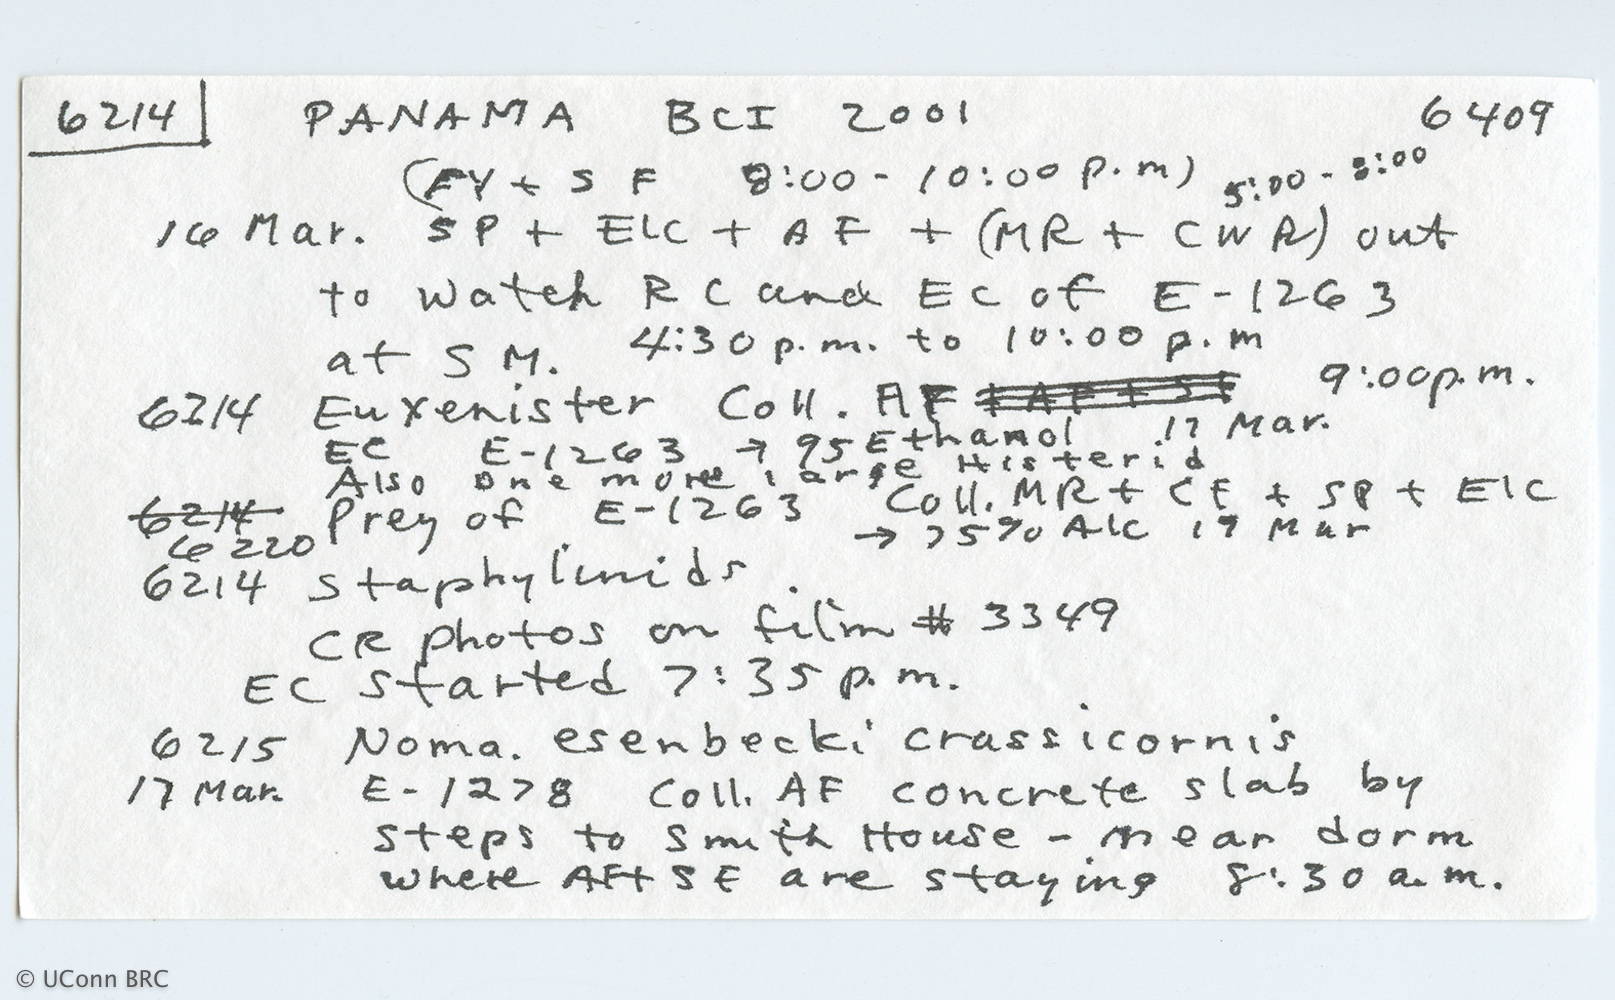 6214 PANAMA BCI 2001 6409
(FY + SF 8:00 - 10:00 p.m) 5:00 - 8:00
16 Mar. SP + EIC + AF + (MR + CWR) out
to watch RC and EC of E-1263
at SM. 4:30 p.m. to 10:00 p.m
6214 Euxenister Coll. AF + AF + SF 9:00p.m.
EC E-1263 → 95 Ethanol 17 Mar.
Also one more large Histerid
6214 Prey of E-1263 Coll. MR + CE + SP + EIC
6220 → 75% Alc 17 Mar
6214 Staphylinids.
CR photos on film # 3349
EC started 7:35 p.m.
6215 Noma. esenbecki crassicornis
17 Mar. E-1278 Coll. AF concrete slab by
steps to Smith House - near dorm
where AF+SF are staying 8:30 a.m.
© UConn BRC